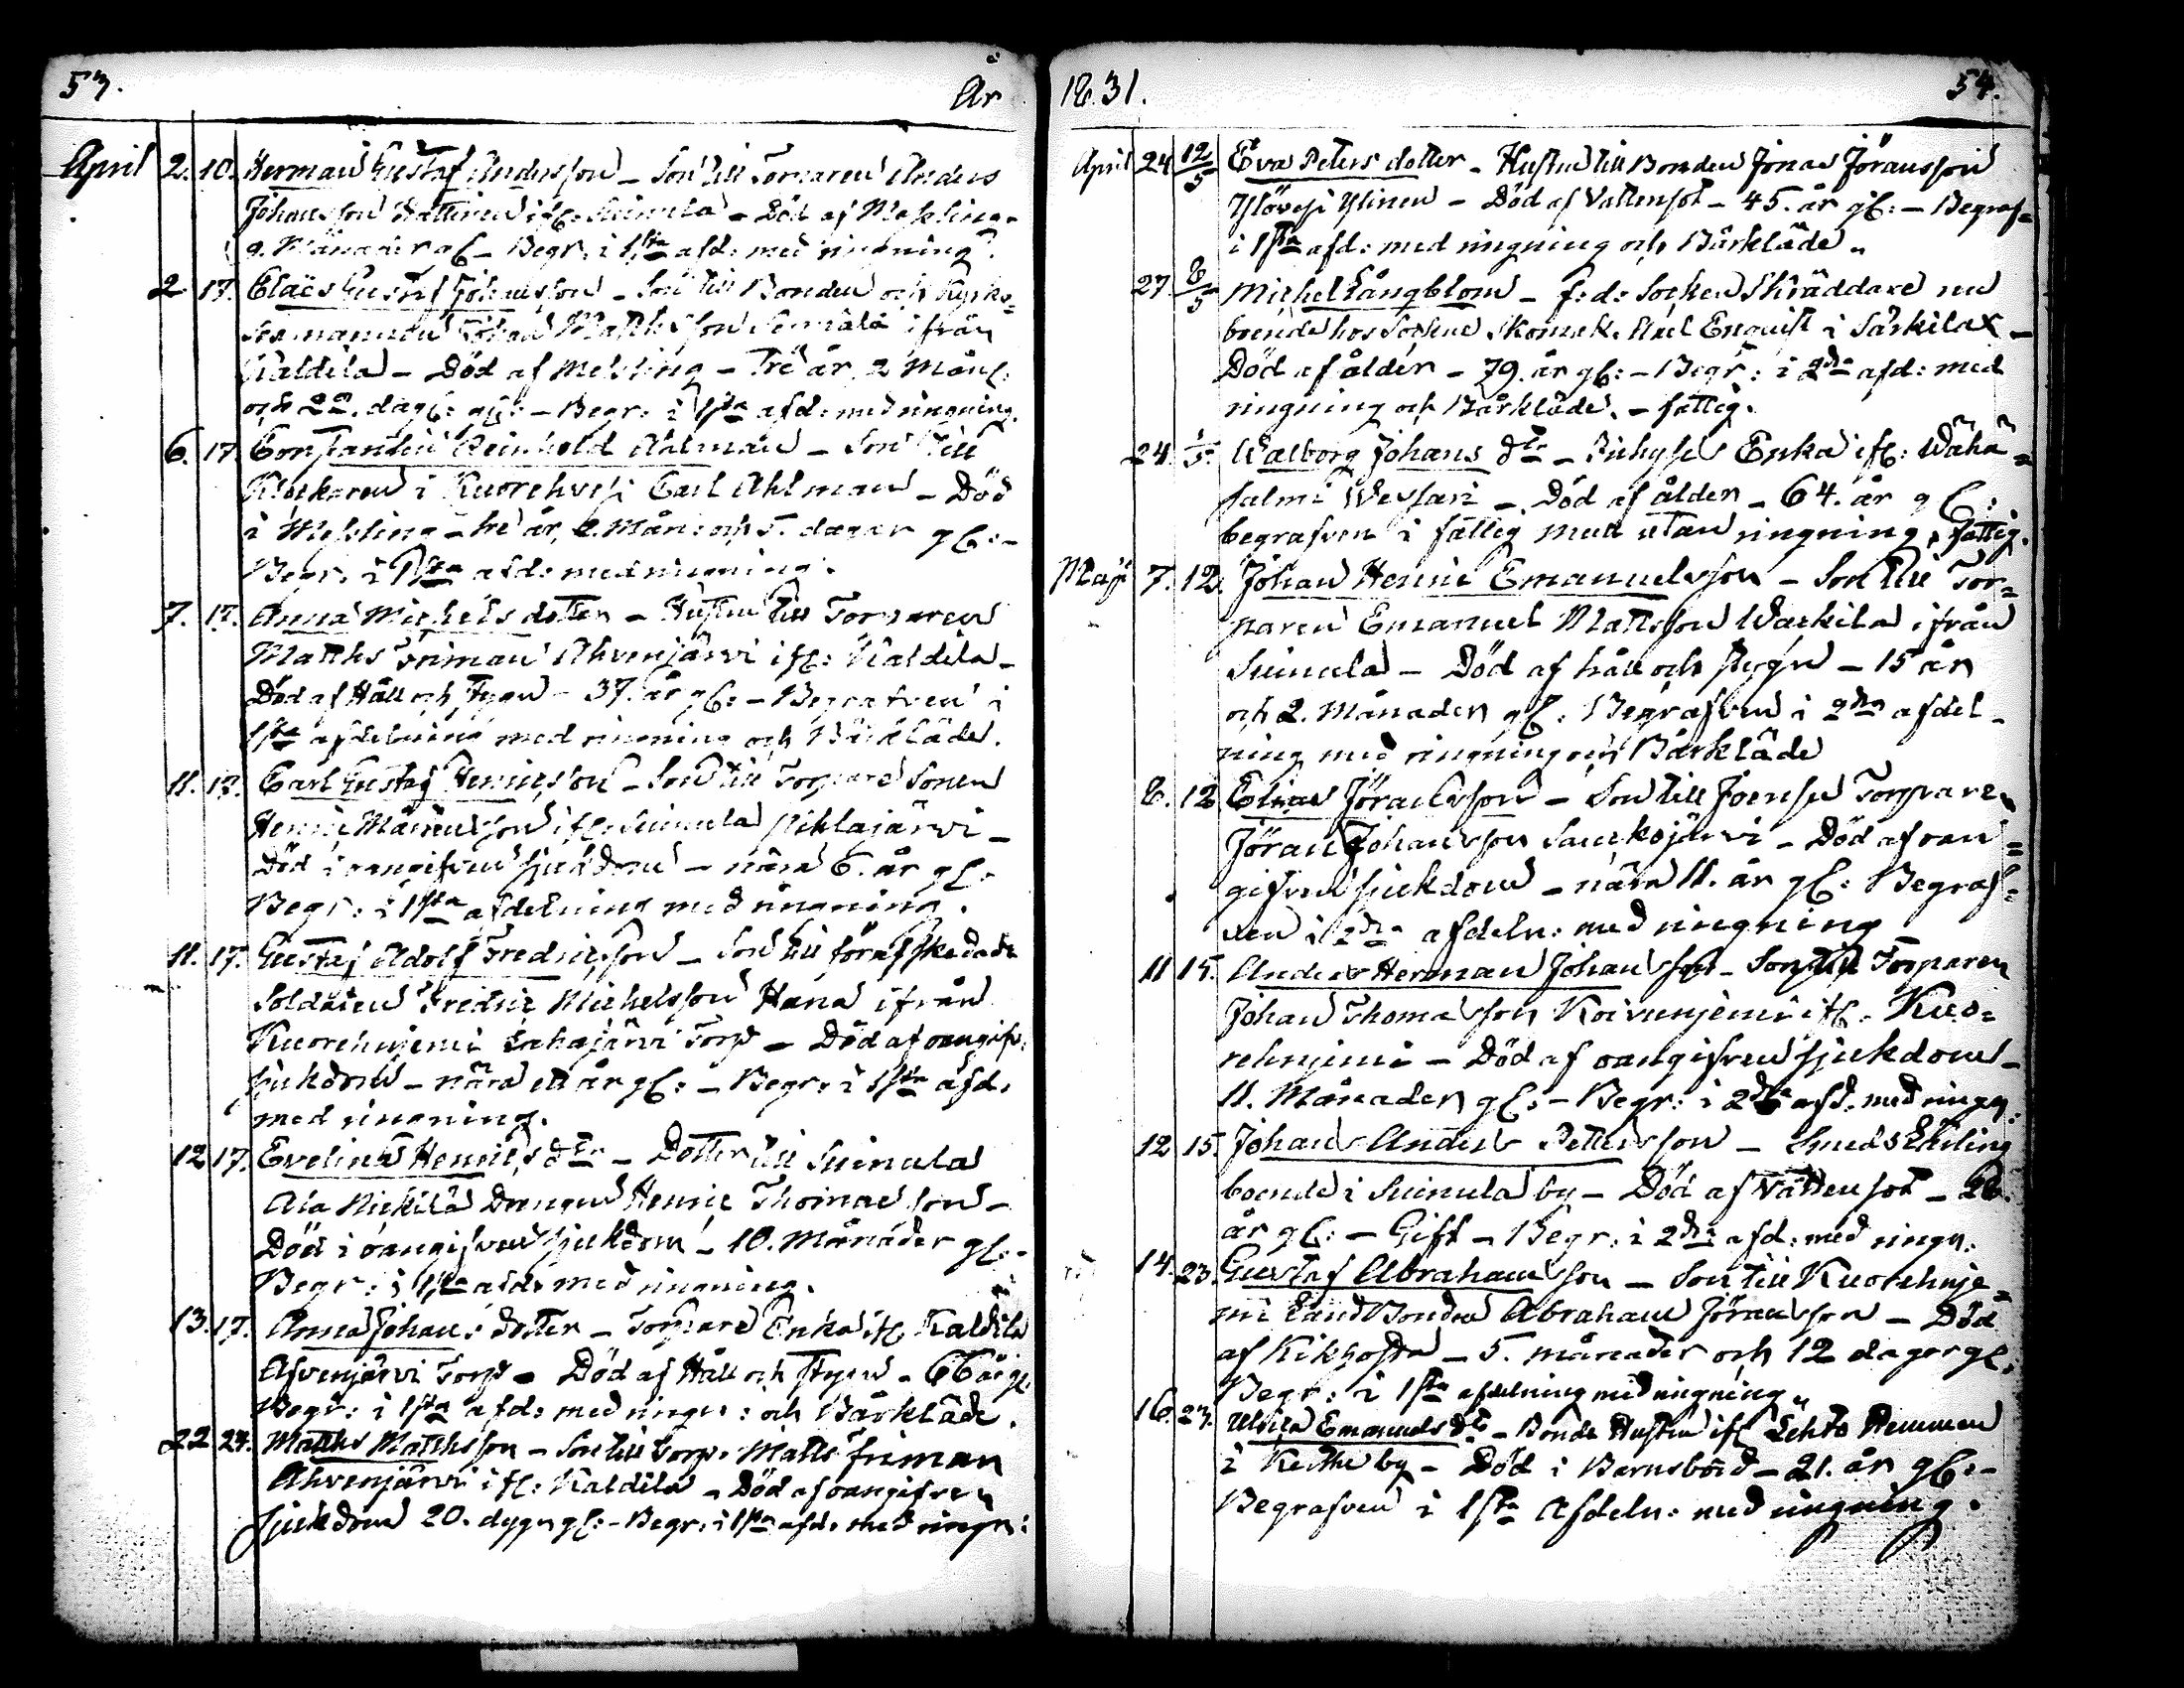 53.
År
April 2. 10. Herman Gustaf Andersson – Son till Torparen Anders
Johansson Hattinen ifr: Suinula – Död af Messling –
9. Månader gl – Begr. i 1sta afd: med ringning.
2 17. Claës Gustaf Johansson – Son till Bonden och Kyrko-
sexmannen Johan Matthsson ifrån
Kaldila – Död af Messling – Tre år, 2 Mån:
och dag: gl: – Begr: i 1sta afd: med ringning.
6. 17. Constantin Reinhold Ahlman – Son till
Klockaren i Kuorehvesi Carl Ahlman – Död
i Messling – tre år, Mån: och 5. dagar gl: –
Begr. i 1sta afd: med ringning.
7. 17. Anna Michelsdotter – Hustru till Torparen
Matths Friman Ahvenjärvi ifr: Kaldila –
Död af Håll och Stygn – 37. år gl: – Begrafven i
1sta afdelning med ringning och Bårkläde.
11. 17. Carl Gustaf Henricsson – Son till Torpare Sonen
Henric ifr: Suinula
Död i oangifven sjukdom – nära 6. år gl:
Begr: i 1sta afdelning med ringning.
11. 17. Gustaf Adolf Fredricsson – Son till förafskedade
Soldaten Fredric Michelsson Hana ifrån
Kuorehnjemi Torp – Död af oangifv:
sjukdom – nära ett år gl: – Begr. i 1sta afd.
med ringning.
12 17. Evelina Henrics dtr – Dotter till Suinula
Ala Mickilä Drängen Henric Thomasson –
Död i oangifven sjukdom – 10. Månader gl: –
Begr: i 1sta afd: med ringning.
13. 17. Anna Johans dotter – Torpare Enka ifr Kaldila
Afvenjärvi Torp – Död af Håll och Stygn – 66 år gl.
Begr: i 1sta afd: med ringn: och Bårkläde.
22 24. Matths Matthsson – Son till Torp. Matts Friman
Ahvenjärvi ifr: Kaldila – Död af oangifven
sjukdom 20. dygn gl: – Begr. i 1sta afd. med ringn:
1831.
54.
April 24 12/5 Eva Peters dotter – Hustru till Bonden Jonas Jöransson
Ylinen – Död af Vattensot – 45. år gl: – Begraf=
i 1sta afd: med ringning och Bårkläde.
27. 8/5 Michel Långblom – f: d: Socken Skräddare nu
boende hos Sockne Skomak. Enqvist i Särkilax –
Död af ålder – 79. år gl: – Begr: i 2dra afd: med
ringning och Bårkläde. – fattig.
24 1/5. Walborg Johans dtr – Enka ifr: Wähä=
salmi – Död af ålder – 64. år gl:
begrafven i fattig utan ringning, fattig.
Maji 7. 12. Johan Henric Emanuelsson – Son till Tor=
paren Emanuel Mattsson Warkila ifrån
Suinula – Död af håll och stygn – 15 år
och 2. Månader gl: Begrafven i 2dra afdel-
ning med ringning och Bårkläde
8. 12 Elias Jöransson – Son till Torparen
Jöran Johansson Saukojärvi – Död af oan=
gifven sjukdom – nära 11. år gl: Begraf=
ven i 2dra afdeln: med ringning
11 15. Anders Herman Johansson – Son till Torparen
Johan Thomasson Koivunjemi ifr: Kuo=
rehnjemi – Död af oangifven sjukdom –
11. Månader gl: – Begr: i 2dra afd. med ringn.
12 15. Johan Anders Pettersson – Smeds
boende i Suinula by – Död af Vattensot – 28.
år gl: – Gift – Begr: i 2dra afd: med ringn:
14. 23. Gustaf Abrahamsson – Son till Kuorehnje=
mi Landbonden Abraham Jöransson – Död
af Kikhosta – 5. månader och 12 dagar gl:
Begr: i 1sta afdelning med ringning.
16. 23. Ulrica Emanuels dtr – Bonde Hustru ifr Lehto Hemman
i by – Död i Barnsbörd – 21. år gl: –
Begrafven i 1sta Afdeln: med ringning.